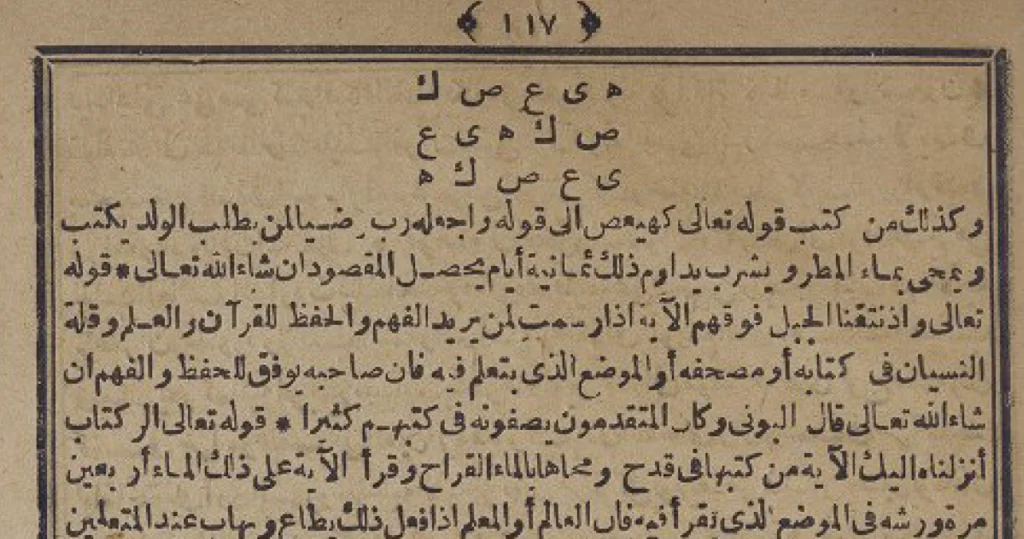 ﴿ ١١٧ ﴾
ه ى ع ص ك
ص ك ه ى ع
ى ع ص ك ه
وكذلك من كتب قوله تعالى كهيعص الى قوله واجعله رب رضيا لمن يطلب الولد يكتب
ويمحى بماء المطر ويشرب يداوم ذلك ثمانية أيام يحصل المقصود ان شاء الله تعالى * قوله
تعالى واذ نتقنا الجبل فوقهم الآية اذا رسمت لمن يريد الفهم والحفظ للقرآن والعلم وقلة
النسيان فى كتابه أو مصحفه أو الموضع الذى يتعلم فيه فان صاحبه يوفق للحفظ والفهم ان
شاء الله تعالى قال البونى وكان المتقدمون يصفونه فى كتبهم كثيرا * قوله تعالى الر كتاب
أنزلناه اليك الآية من كتبها فى قدح ومحاها بالماء القراح وقرأ الآية على ذلك الماء أربعين
مرة ورشه فى الموضع الذى تقرأ فيه فان العالم أو المعلم اذا فعل ذلك يطاع ويهاب عند المتعلمين